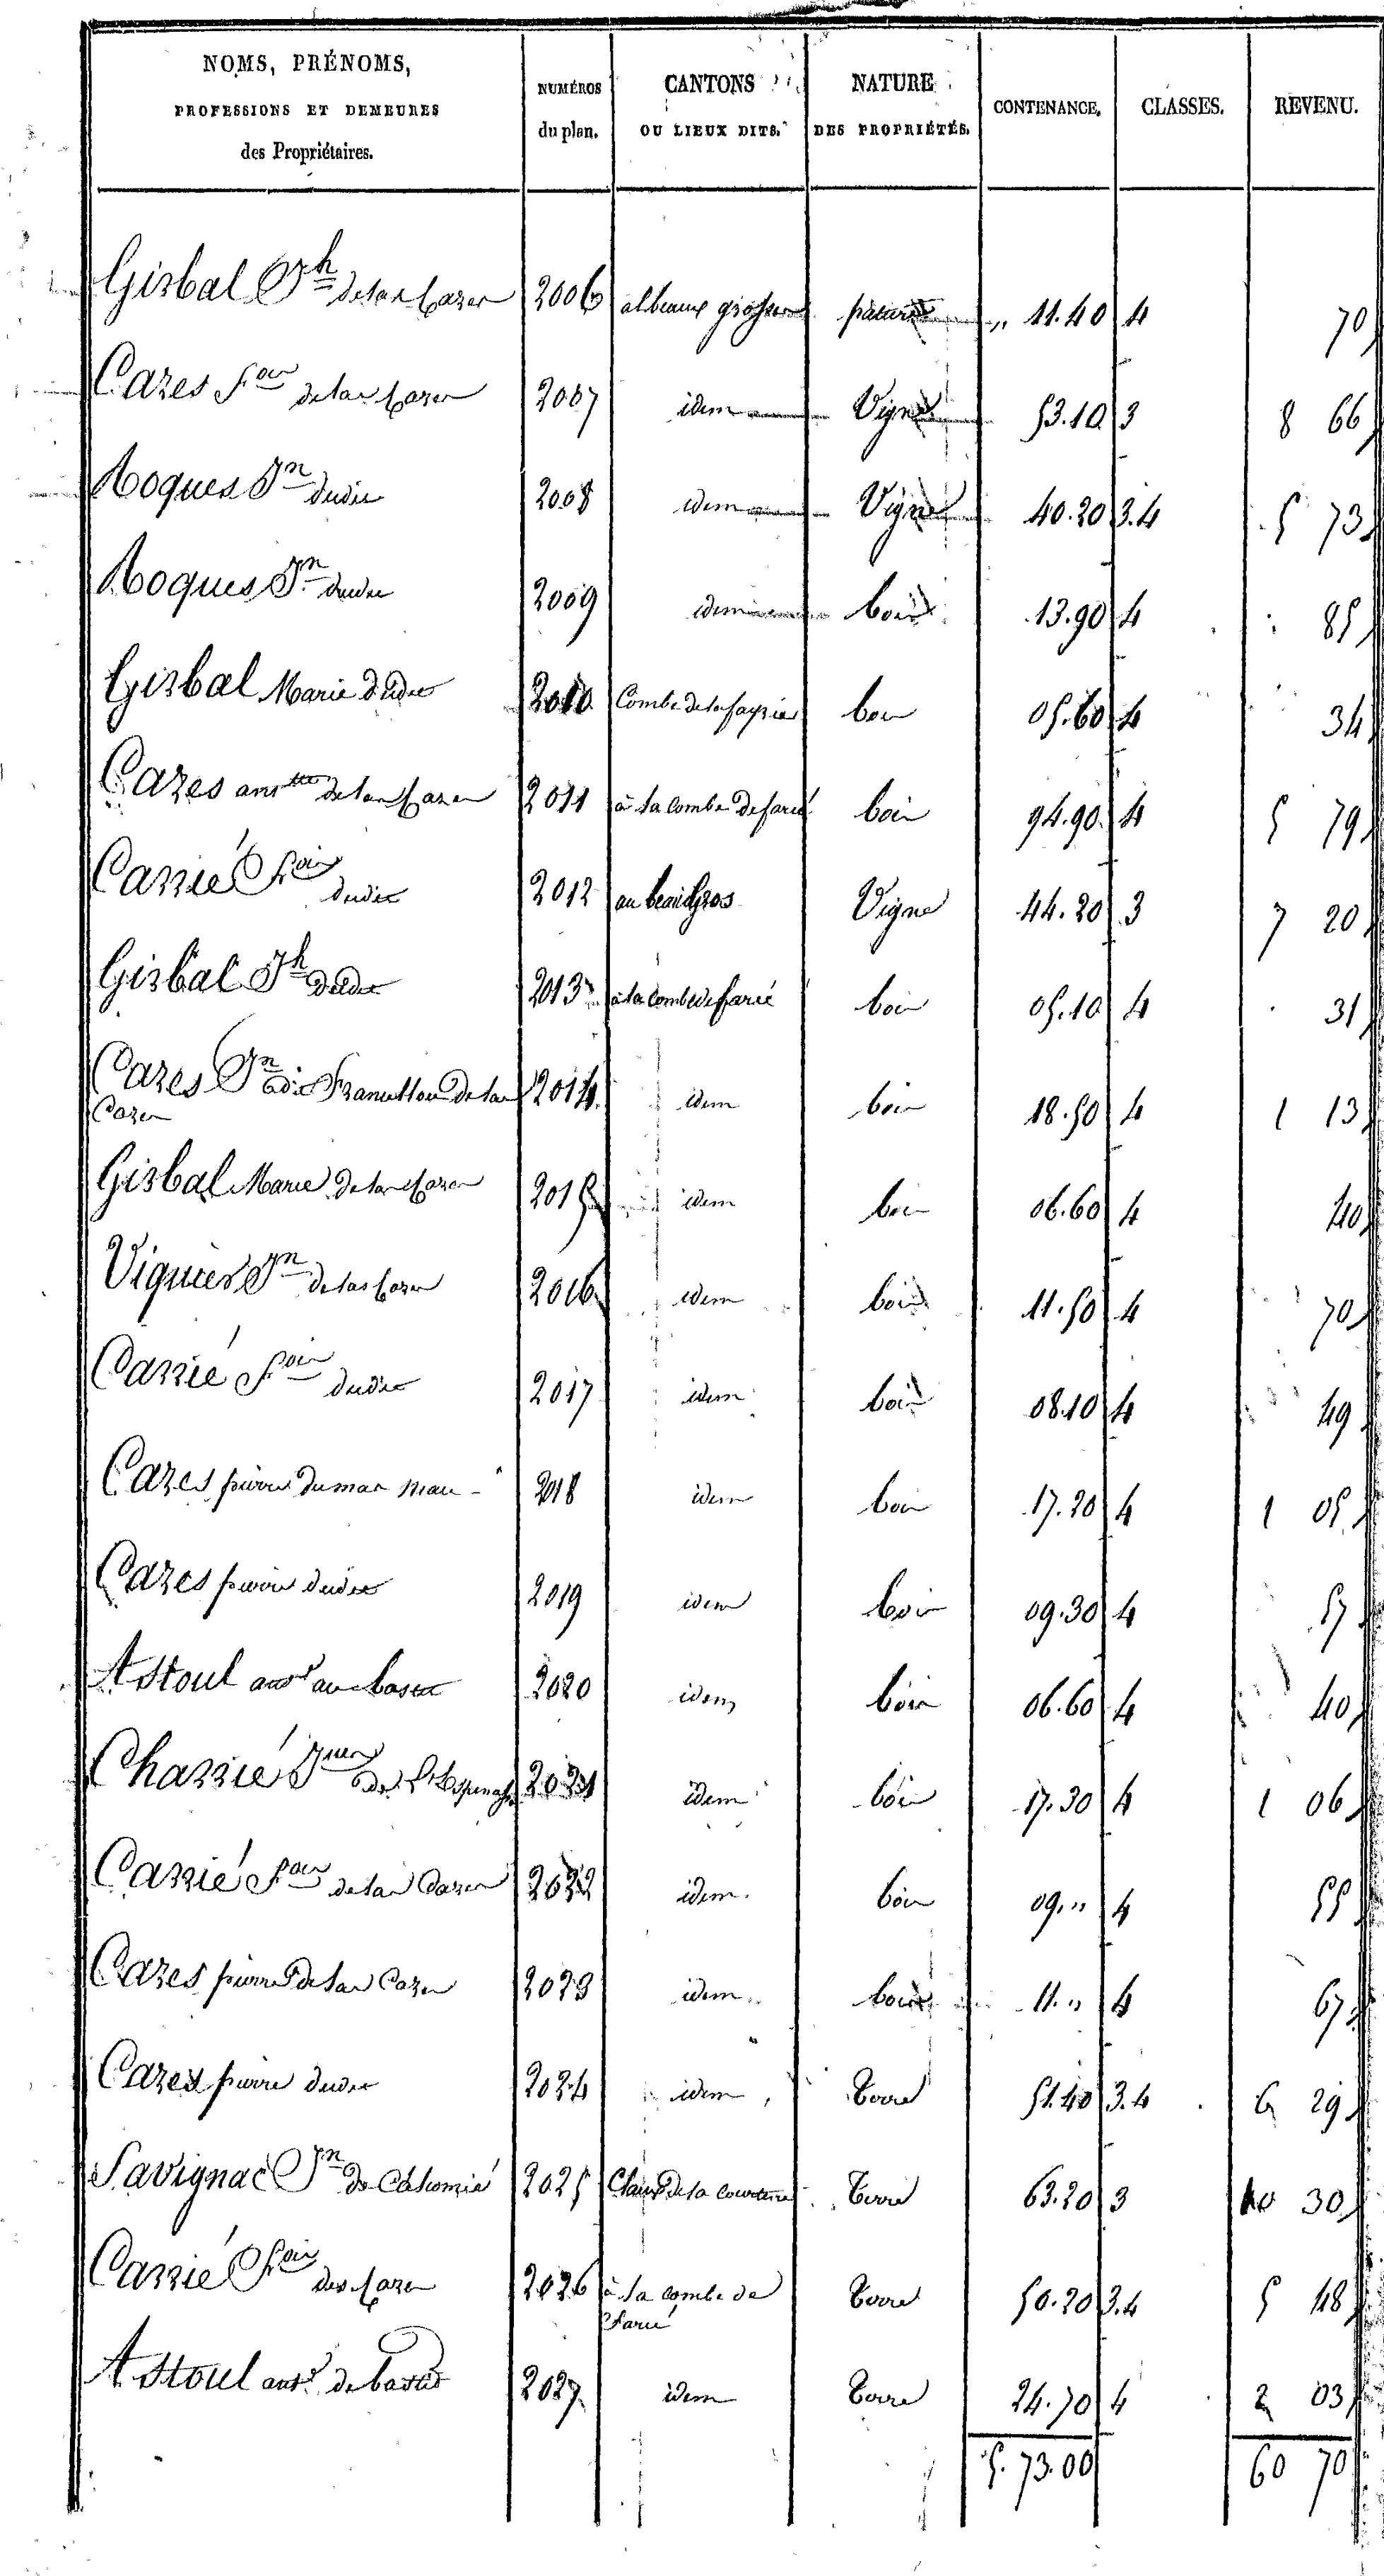 NOMS, PRÉNOMS, PROFESSIONS ET DEMEURES des Propriétaires. NUMÉROS du plan. CANTONS OU LIEUX DITS. NATURE DES PROPRIÉTÉS. CONTENANCE. CLASSES. REVENU.
Gisbal Jh de las Cazes 2006 pature 11.40 4 70
Cazes fois de las Cazes 2007 idem Vigne 53.10 3 8 66
Roques Jn dudit 2008 idem Vigne 40.20 3.4 5 73
Roques Jn dudit 2009 idem bois 13.90 4 85
Gisbal Marie dudit 2010 Combe de bois 05.60 4 34
Cazes de las Cazes 2011 à la combe de farié bois 94.90 4 5 79
Cassié fois dudit 2012 au Vigne 44.20 3 7 20
Gisbal Jh dudit 2013 à la Combe de farié bois 05.10 4 31
Cazes Jn dit de las Cazes 2014 idem bois 18.50 4 1 13
Gisbal Marie de las Cazes 2015 idem bois 06.60 4 40
Viguier Jn de las Cazes 2016 idem bois 11.50 4 70
Cassié fois dudit 2017 idem bois 08.10 4 49
Cazes pierre du mas 2018 idem bois 17.20 4 1 05
Cazes pierre dudit 2019 idem bois 09.30 4 57
Astoul 2020 idem bois 06.60 4 40
Chassié 2021 idem bois 17.30 4 1 06
Cassié fois de las Cazes 2022 idem bois 09.'' 4 55
Cazes pierre de las Cazes 2023 idem bois 11.'' 4 67
Cazes pierre dudit 2024 idem Terre 51.40 3.4 6 29
Savignac Jn de 2025 Claus de la Terre 63.20 3 10 30
Cassié fois des Cazes 2026 à la combe de farié Terre 50.20 3.4 5 48
Astoul 2027 idem Terre 24.70 4 2 03
5.73.00 60 70